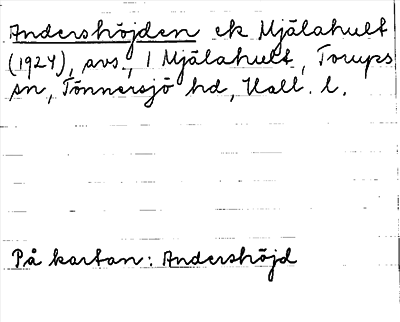 Andershöjden ek Mjälahult
(1924), avs., 1 Mjälahult, Torups
sn, Tönnersjö hd, Hall. l.
På kartan: Andershöjd